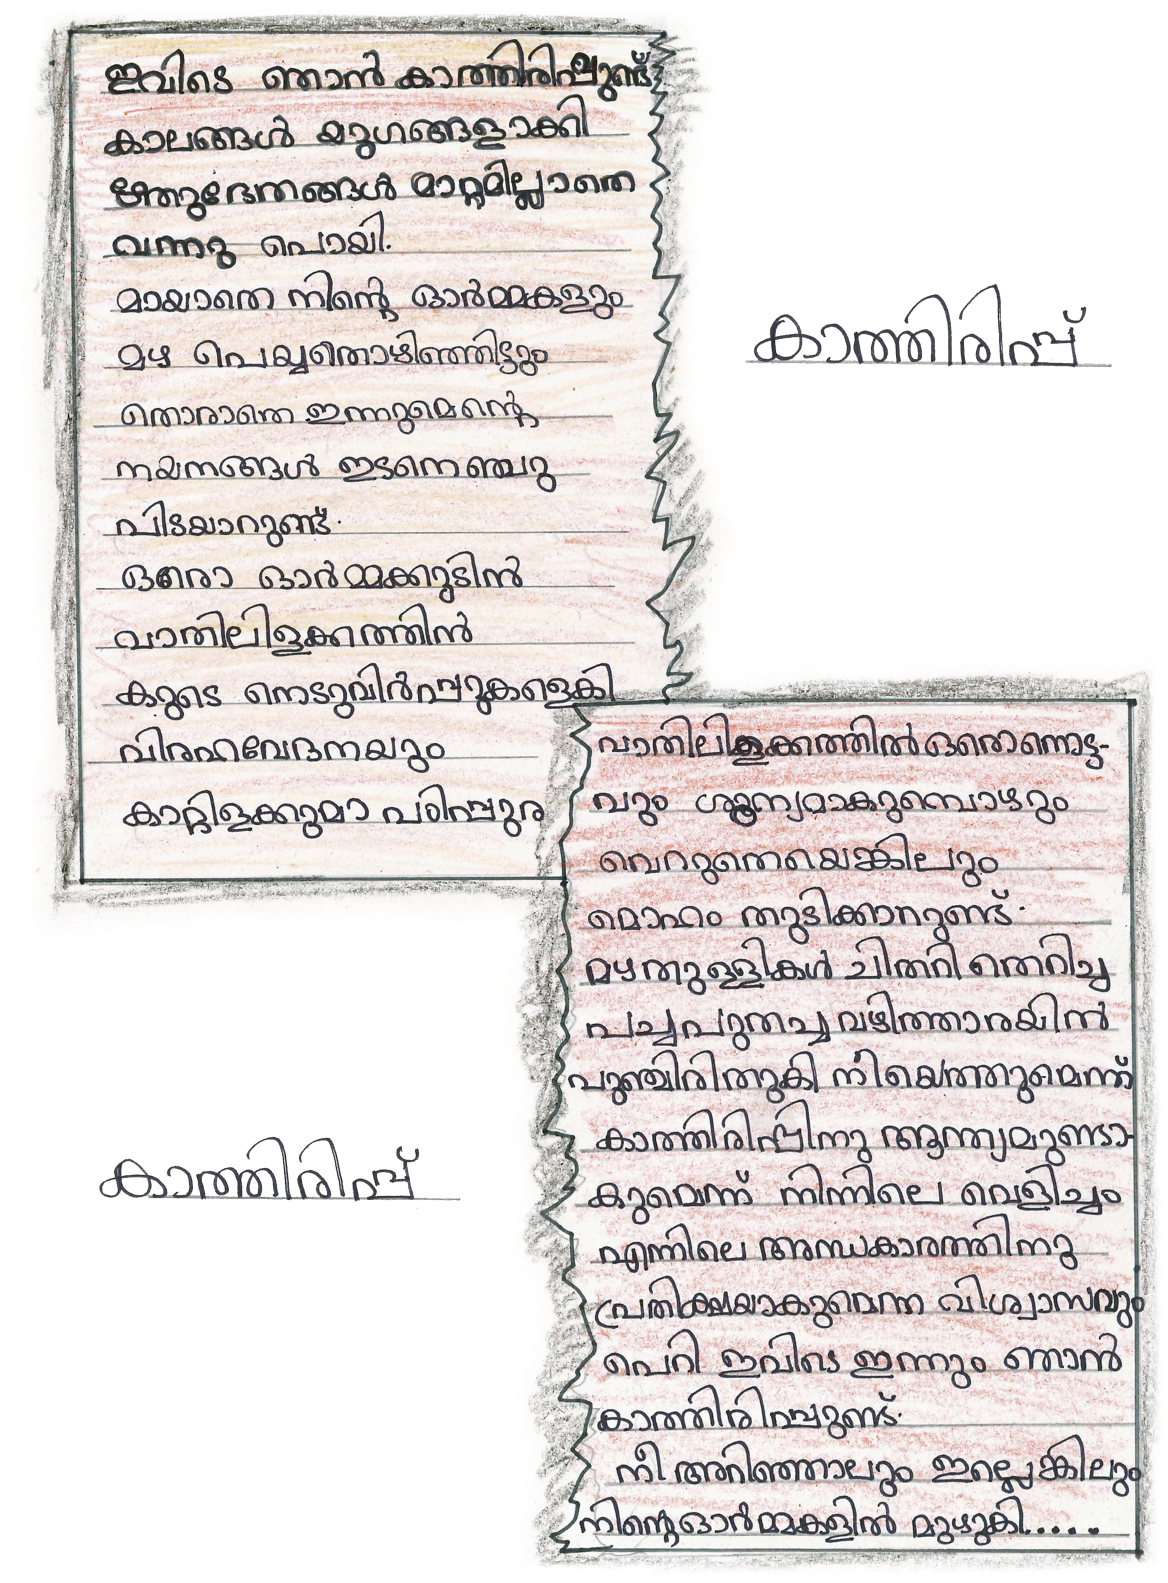 ഇവിടെ ഞാൻ കാത്തിരിപ്പുണ്ട്
കാലങ്ങൾ യുഗങ്ങളാക്കി
ഋതുഭേതങ്ങൾ മാറ്റമില്ലാതെ
വന്നു പൊയി.
മായാതെ നിന്റെ ഓർമ്മകളും
മഴ പെയ്യതൊഴിഞ്ഞിട്ടും
തൊരാതെ ഇന്നുമെന്റെ
നയനങ്ങൾ ഇടനെഞ്ചു
പിടയാറുണ്ട്.
ഒരൊ ഓർമ്മക്കൂടിൻ
വാതിലിളക്കത്തിൻ
കൂടെ നെടുവിർപ്പുകളെകി
വിരഹവേദനയും
കാറ്റിളക്കുമാ പഠിപ്പുര
കാത്തിരിപ്പ്
വാതിലിളക്കത്തിൽ ഒരൊന്നൊട്ട-
വും ശൂന്യമാകുമ്പൊഴും
വെറുതെയെങ്കിലും
മൊഹം തുടിക്കാനുണ്ട്.
മഴതുള്ളികൾ ചിതറി തെറിച്ച
പച്ചപുതച്ച വഴിത്താരയിൽ
പുഞ്ചിരിതൂകി നീയെത്തുമെന്ന്
കാത്തിരിപ്പിനു ആന്ത്യമുണ്ടാ-
കുവെന്ന് നിന്നിലെ വെളിച്ചം
എന്നിലെ അന്ധകാരത്തിനു
പ്രതിക്ഷയാകുമെന്ന വിശ്വാസവും
പെറി ഇവിടെ ഇന്നും ഞാൻ
കാത്തിരിപ്പുണ്ട്.
നീ അറിഞ്ഞാലും ഇല്ലെങ്കിലും
നിന്റെ ഓർമ്മകളിൽ മുഴുകി.....
കാത്തിരിപ്പ്